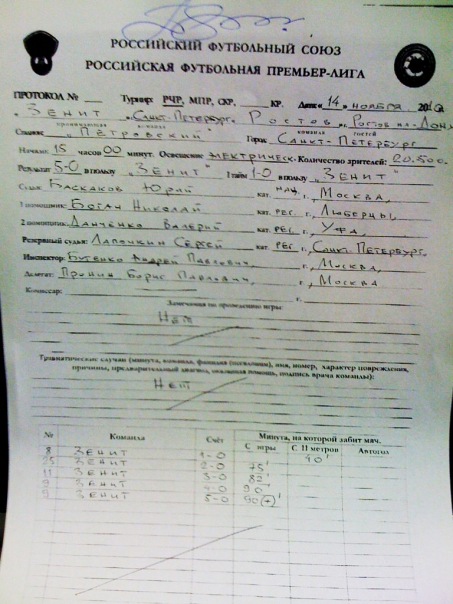 РОССИЙСКИЙ ФУТБОЛЬНЫЙ СОЮЗ
РОССИЙСКАЯ ФУТБОЛЬНАЯ ПРЕМЬЕР-ЛИГА
ПРОТОКОЛ № Турнир: РЧР, МПР, СКР, КР. Дата: « 14 » НОЯБРЯ
« ЗЕНИТ » Санкт-Петербург. РОСТОВ г. Ростов на-Дону
команда команда гостей
Стадион: ПЕТРОВСКИЙ Город САНКТ-ПЕТЕРБУРГ
Начало: 15 часов 00 минут. Освещение ЭЛЕКТРИЧЕСК. Количество зрителей: 20.500.
Результат 5-0 в пользу „ЗЕНИТ" 1 тайм 1-0 в пользу „ЗЕНИТ"
Судья: БАСКАКОВ ЮРИЙ кат. НАЦ г., МОСКВА,
1 помощник: БОГАН НИКОЛАЙ кат. РЕГ г., ЛЮБЕРЦЫ,
2 помощник: ДАНЧЕНКО ВАЛЕРИЙ кат. РЕГ г., УФА,
Резервный судья: ЛАПОЧКИН СЕРГЕЙ кат. РЕГ г., Санкт-Петербург,
Инспектор: БУТЕНКО АНДРЕЙ ПАВЛОВИЧ, г., МОСКВА,
Делегат: ПРОНИН БОРИС ПАВЛОВИЧ, г., МОСКВА
Комиссар: г.
Замечания по проведению игры:
НЕТ
Травматические случаи (минута, команда, фамилия (полностью), имя, номер, характер повреждения,
причины, предварительный диагноз, оказанная помощь, подпись врача команды):
НЕТ
№ Команда Счёт Минута, на которой забит мяч.
С игры С 11 метров Автогол
8 ЗЕНИТ 1-0 40'
25 ЗЕНИТ 2-0 75'
11 ЗЕНИТ 3-0 82'
9 ЗЕНИТ 4-0 90
9 ЗЕНИТ 5-0 90(+)'